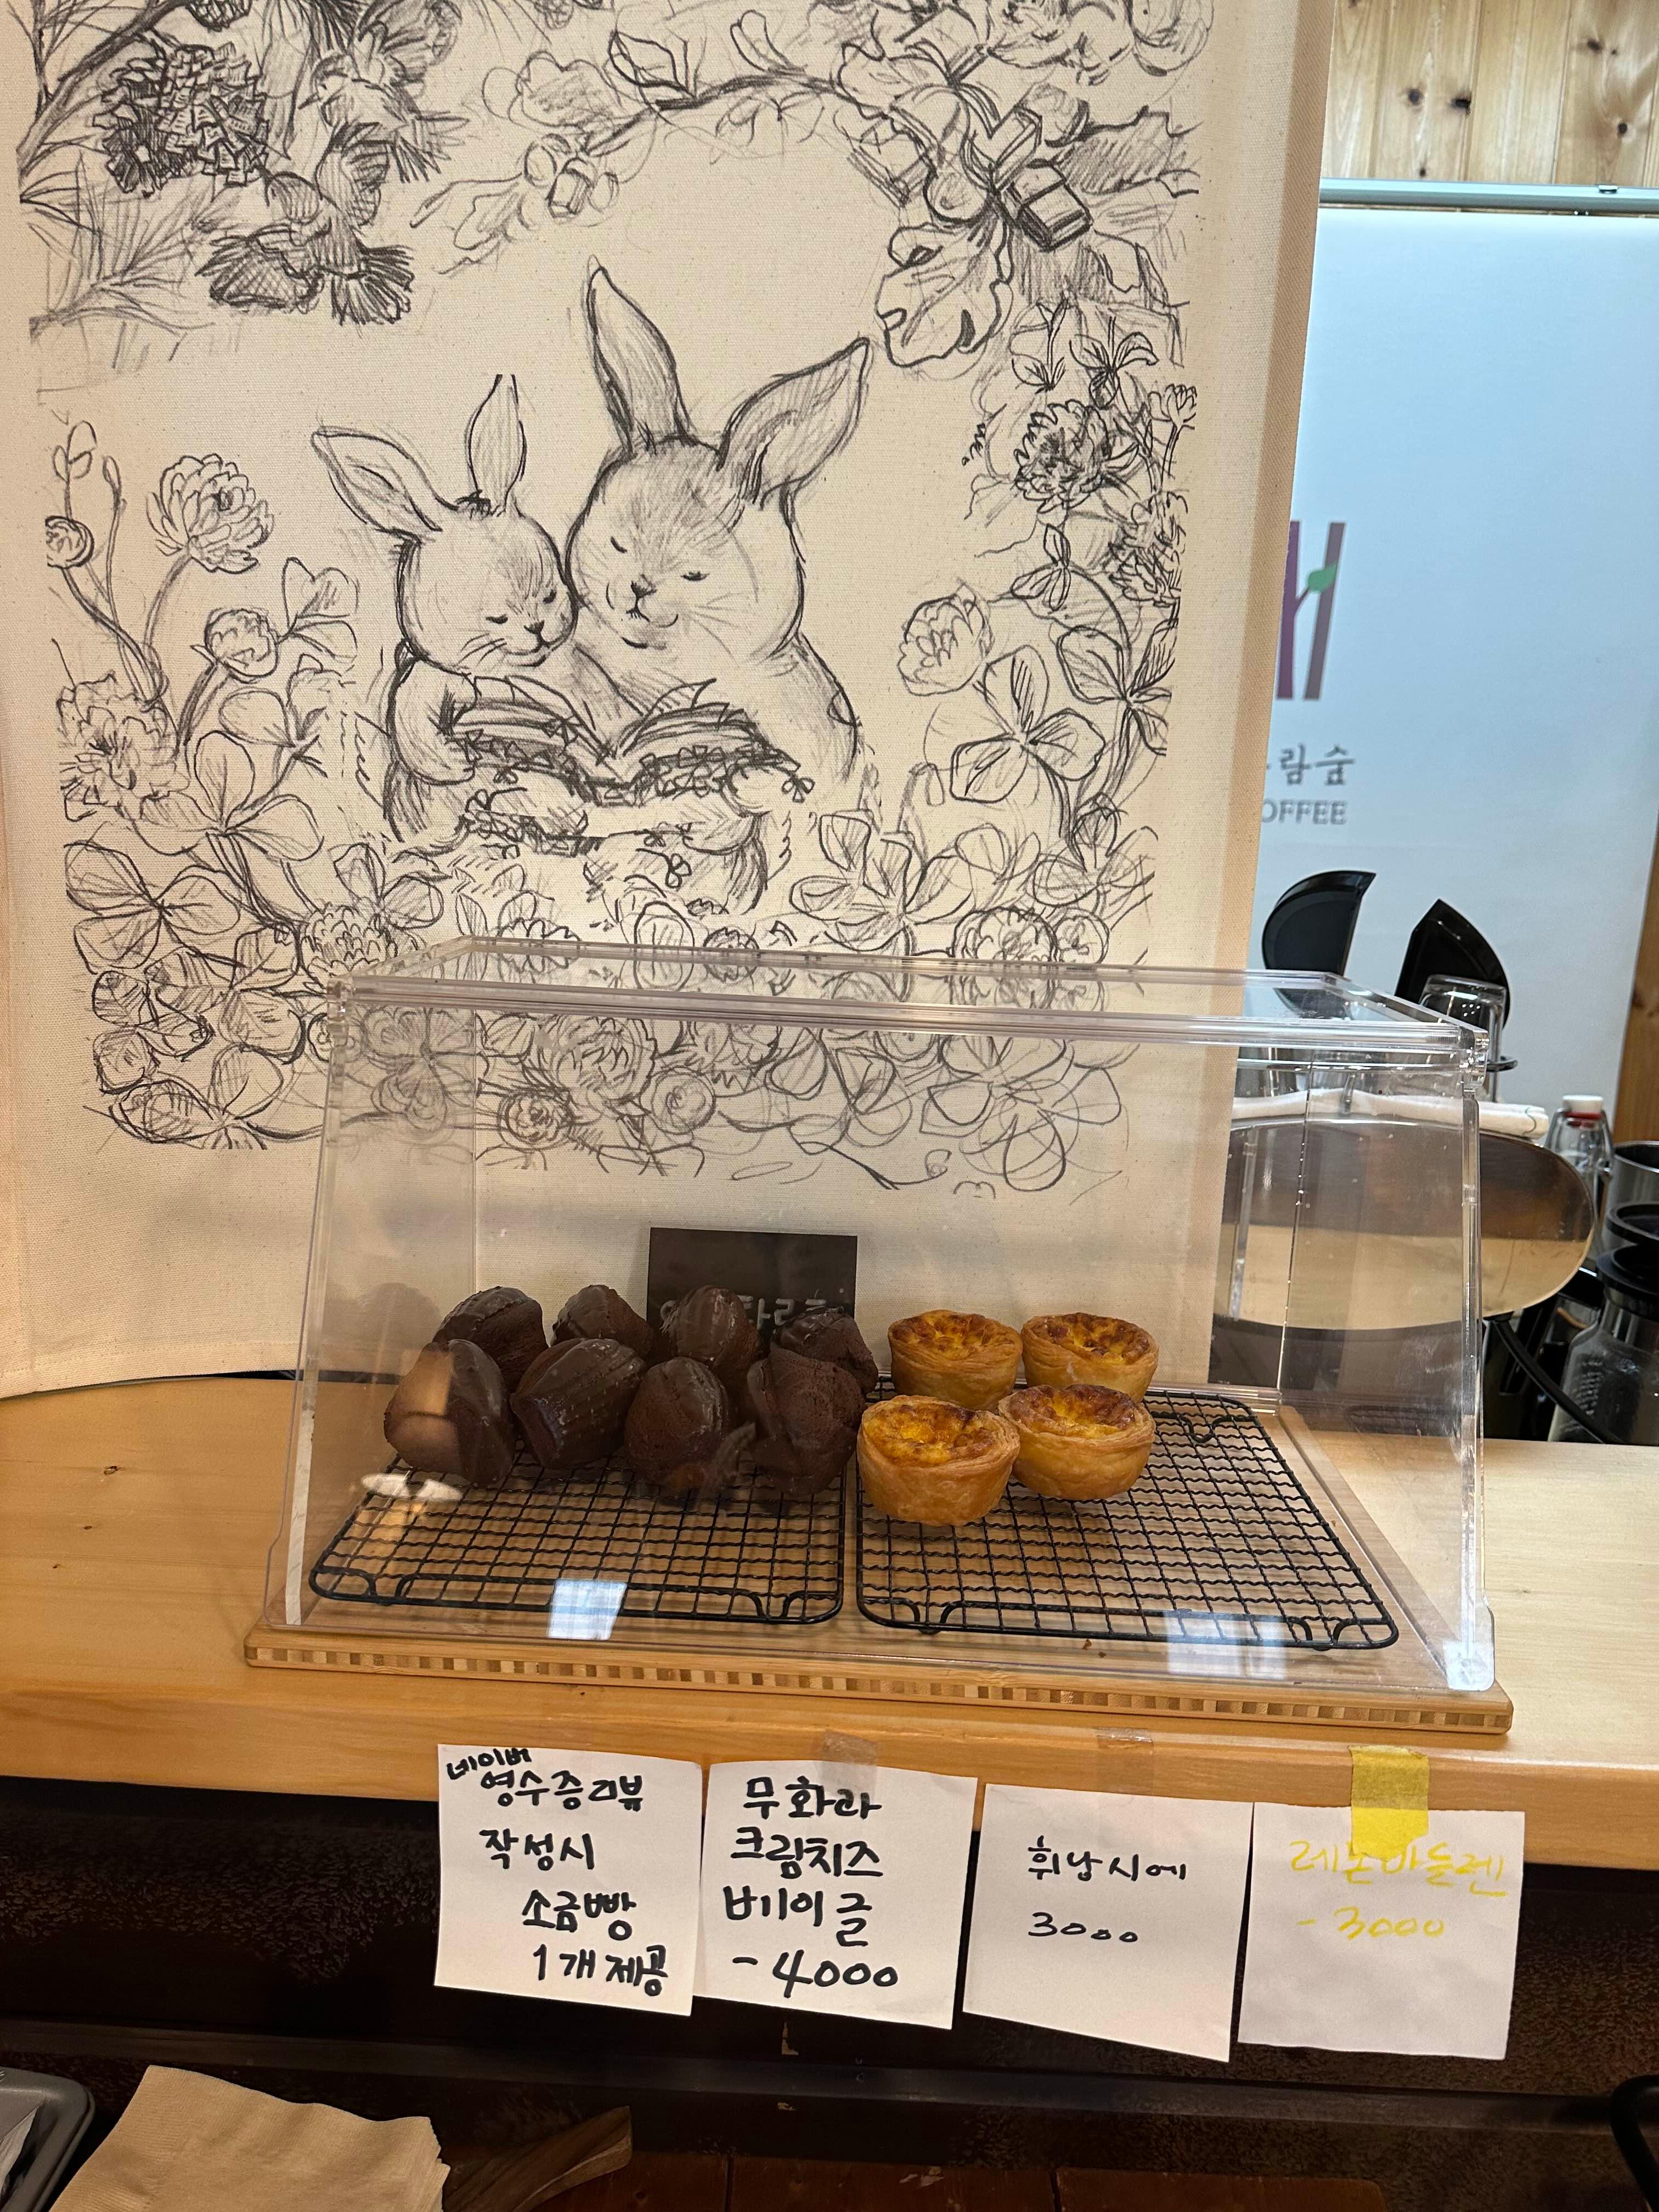 람숲
OFFEE
네이버
영수증리뷰
작성시
소금빵
1개 제공
무화과
크림치즈
베이글
- 4000
휘낭시에
3000
레몬마들렌
- 3000